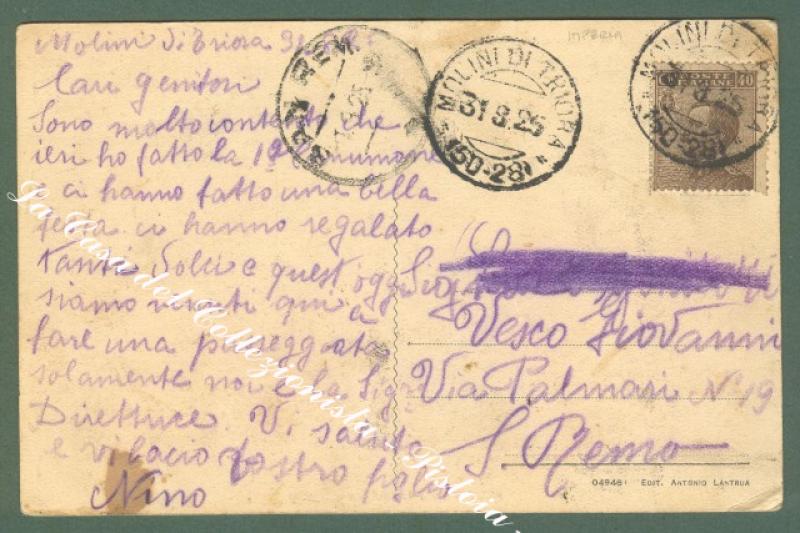 Molini di Triora 31.8.25
Cari genitori
Sono molto contento che
ieri ho fatto la 1ª comunione
ci hanno fatto una bella
festa ci hanno regalato
tanti dolci e quest'oggi
siamo venuti qui a
fare una passeggiata
solamente noi e la Sigra
Direttrice. Vi saluta
e vi bacio vostro figlio
Nino
SAN REMO
MOLINI DI TRIORA
31.8.25
(50-28)
IMPERIA
MOLINI DI TRIORA
(50-28)
POSTE ITALIANE 40
Vesco Giovanni
Via Palmari N° 19
S. Remo
04946 EDIT. ANTONIO LANTRUA
La Casa del Collezionista - Pistoia